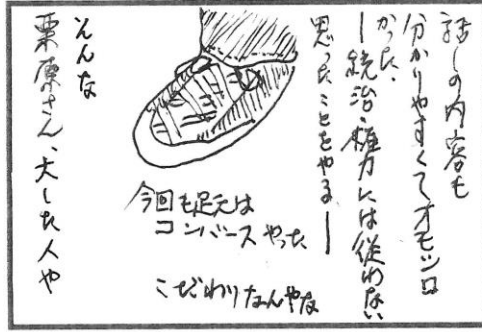 話しの内容も
分かりやすくてオモシロ
かった、
―統治・権力には従わない
思ったことをやる―
今回も足元は
コンバースやった
こだわりなんやな
そんな
栗原さん、大した人や